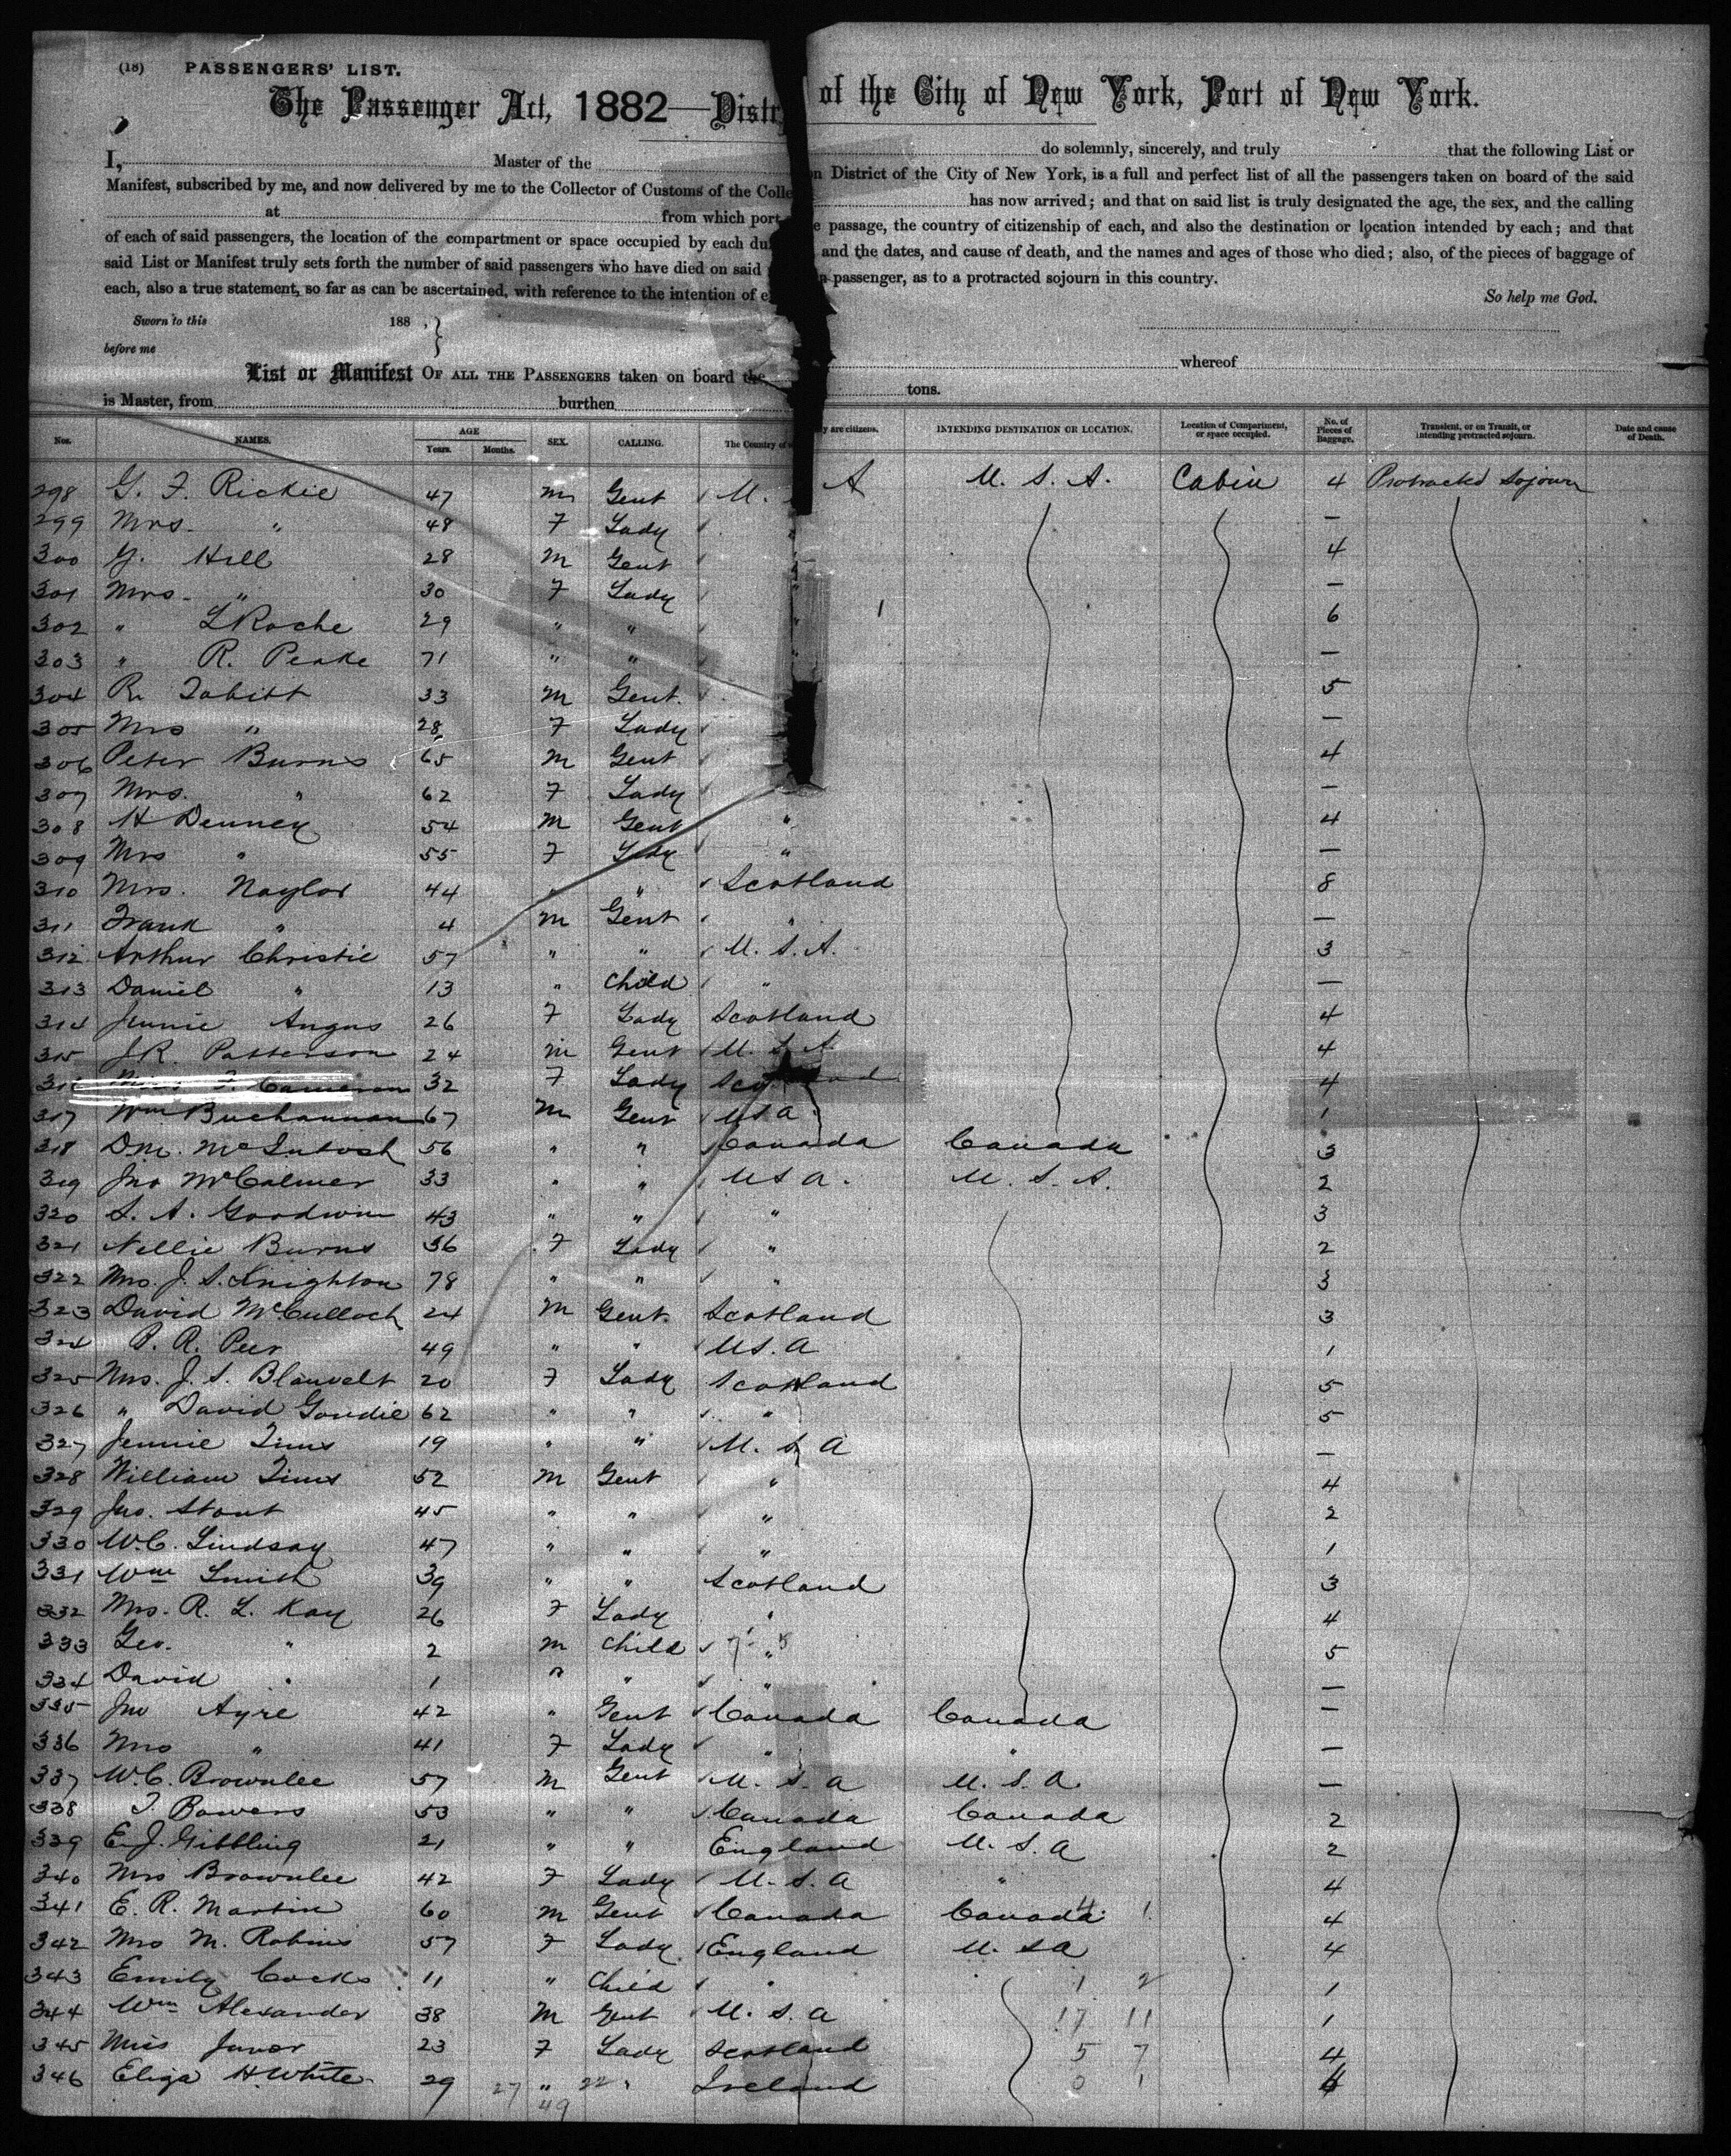 (18) PASSENGERS' LIST.
The Passenger Act, 1882—Distr of the City of New York, Port of New York.
I, Master of the do solemnly, sincerely, and truly that the following List or
Manifest, subscribed by me, and now delivered by me to the Collector of Customs of the Colle n District of the City of New York, is a full and perfect list of all the passengers taken on board of the said
at from which port has now arrived; and that on said list is truly designated the age, the sex, and the calling
of each of said passengers, the location of the compartment or space occupied by each du e passage, the country of citizenship of each, and also the destination or location intended by each; and that
said List or Manifest truly sets forth the number of said passengers who have died on said and the dates, and cause of death, and the names and ages of those who died; also, of the pieces of baggage of
each, also a true statement, so far as can be ascertained, with reference to the intention of e passenger, as to a protracted sojourn in this country.
So help me God.
Sworn to this 188 ,
before me
List or Manifest OF ALL THE PASSENGERS taken on board the whereof
is Master, from burthen tons.
Nos. NAMES. AGE Years. Months. SEX. CALLING. The Country of y are citizens. INTENDING DESTINATION OR LOCATION. Location of Compartment, or space occupied. No. of Pieces of Baggage. Transient, or on Transit, or intending protracted sojourn. Date and cause of Death.
298 G. F. Rickie 47 m Gent U. A U. S. A. Cabin 4 Protracted Sojourn
299 Mrs. " 48 F Lady —
300 G. Hill 28 M Gent 4
301 Mrs. " 30 F Lady —
302 " L Roche 29 " " 6
303 " R. Peake 71 " " —
304 R. Tabitt 33 M Gent. 5
305 Mrs " 28 F Lady —
306 Peter Burns 65 M Gent 4
307 Mrs. " 62 F Lady —
308 H Denney 54 M Gent " 4
309 Mrs " 55 F Lady " —
310 Mrs. Naylor 44 " " Scotland 8
311 Frank " 4 M Gent " —
312 Arthur Christie 57 " " U. S. A. 3
313 Daniel " 13 " Child " —
314 Jennie Angus 26 F Lady Scotland 4
315 J.R. Patterson 24 M Gent U. S. A 4
316 Cameron 32 F Lady Scotland 4
317 Wm Buchannan 67 M Gent USA. 1
318 D.M. McIntosh 56 " " Canada Canada 3
319 Jno McCalmer 33 " " USA. U. S. A. 2
320 S. A. Goodwin 43 " " " 3
321 Nellie Burns 36 F Lady " 2
322 Mrs. J. S. Knighton 78 " " " 3
323 David McCulloch 24 M Gent. Scotland 3
324 P. R. Peer 49 " " US. A 1
325 Mrs. J. S. Blauvelt 20 F Lady Scotland 5
326 " David Goudie 62 " " " 5
327 Jennie Tims 19 " " U. S. A —
328 William Tims 52 M Gent " 4
329 Jno. Stout 45 " " " 2
330 W.C. Lindsay 47 " " " 1
331 Wm Smith 39 " " Scotland 3
332 Mrs. R. L. Kay 26 F Lady " 4
333 Geo. " 2 M Child " 5
334 David " 1 " " " —
335 Jno Ayre 42 " Gent Canada Canada —
336 Mrs " 41 F Lady " " —
337 W.C. Brownlee 57 M Gent U. S. A U. S. A —
338 T. Bowers 53 " " Canada Canada 2
339 E.J. Gibbling 21 " " England U. S. A 2
340 Mrs Brownlee 42 F Lady U. S. A " 4
341 E. R. Martin 60 M Gent Canada Canada 4
342 Mrs M. Robins 57 F Lady England U. SA 4
343 Emily Cocks 11 " Child " 1 2 1
344 Wm Alexander 38 M Gent U. S. A 17 11 1
345 Miss Junor 23 F Lady Scotland 5 7 4
346 Eliza H. White 29 27 " 22 " Ireland 0 1
49